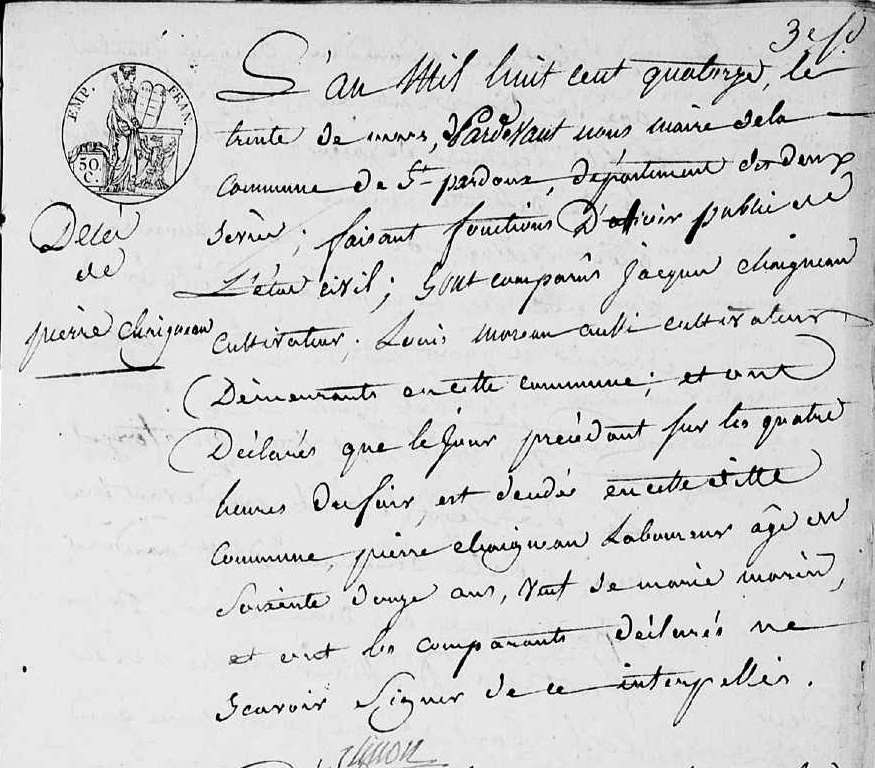 3e f.
EMP. FRAN.
50 C.
Décès
de
pierre Chaigneau
L'an Mil huit cent quatorze, le
trente de mars, Pardevant nous maire dela
commune de St pardoux, département des deux
sevres; faisant fonctions D'officier public de
L'état civil; Sont comparus Jacques chaigneau
cultivateur, Louis moreau aussi cultivateur
Démeurants en cette commune; et ont
Déclarés que le Jour précédent sur les quatre
heures du soir, est décédés en cette ditte
commune, pierre chaigneau Laboureur âgé de
soixente douze ans, veuf de marie marin,
et ont les comparants déclarés ne
scavoir Signer de ce interpellés.